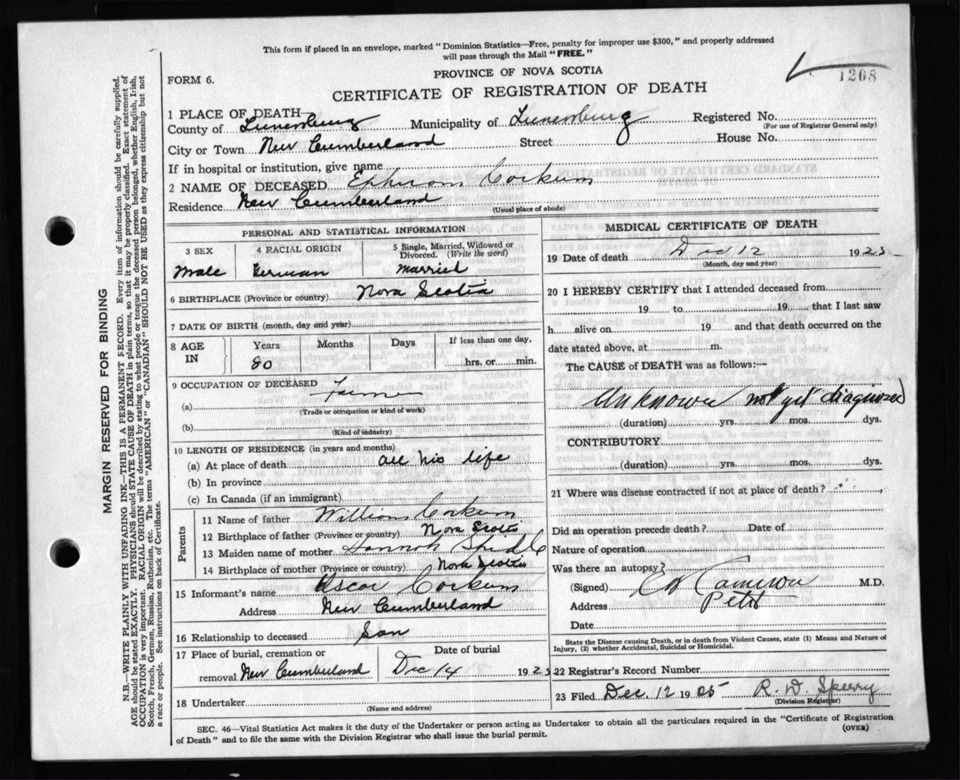 This form if placed in an envelope, marked "Dominion Statistics—Free, penalty for improper use $300," and properly addressed
will pass through the Mail "FREE."
1208
FORM 6.
PROVINCE OF NOVA SCOTIA
CERTIFICATE OF REGISTRATION OF DEATH
1 PLACE OF DEATH
County of Lunenburg Municipality of Lunenburg Registered No.
(For use of Registrar General only)
City or Town New Cumberland Street House No.
If in hospital or institution, give name
2 NAME OF DECEASED Ephriam Corkum
Residence New Cumberland
(Usual place of abode)
PERSONAL AND STATISTICAL INFORMATION
3 SEX 4 RACIAL ORIGIN 5 Single, Married, Widowed or Divorced. (Write the word)
Male German Married
6 BIRTHPLACE (Province or country) Nova Scotia
7 DATE OF BIRTH (month, day and year)
8 AGE IN Years Months Days If less than one day,
80 hrs. or min.
9 OCCUPATION OF DECEASED Farmer
(a)
(Trade or occupation or kind of work)
(b)
(Kind of industry)
10 LENGTH OF RESIDENCE (in years and months)
(a) At place of death all his life
(b) In province
(c) In Canada (if an immigrant)
Parents
11 Name of father William Corkum
12 Birthplace of father (Province or country) Nova Scotia
13 Maiden name of mother Hannah
14 Birthplace of mother (Province or country) Nova Scotia
15 Informant's name Oscar Corkum
Address New Cumberland
16 Relationship to deceased Son
17 Place of burial, cremation or removal New Cumberland Date of burial Dec 14 192
18 Undertaker
(Name and address)
MEDICAL CERTIFICATE OF DEATH
19 Date of death Dec 12 192
(Month, day and year)
20 I HEREBY CERTIFY that I attended deceased from
19 to 19 that I last saw
h alive on 19 and that death occurred on the
date stated above, at m.
The CAUSE of DEATH was as follows:—
Unknown not yet diagnosed
(duration) yrs. mos. dys.
CONTRIBUTORY
(duration) yrs. mos. dys.
21 Where was disease contracted if not at place of death?
Did an operation precede death? Date of
Nature of operation
Was there an autopsy?
(Signed) Cameron M.D.
Address
Date
State the Disease causing Death, or in death from Violent Causes, state (1) Means and Nature of
Injury, (2) whether Accidental, Suicidal or Homicidal.
22 Registrar's Record Number
23 Filed Dec. 12 19 R. D. Sperry
(Division Registrar)
SEC. 46—Vital Statistics Act makes it the duty of the Undertaker or person acting as Undertaker to obtain all the particulars required in the "Certificate of Registration
of Death" and to file the same with the Division Registrar who shall issue the burial permit. (OVER)
MARGIN RESERVED FOR BINDING
N.B.—WRITE PLAINLY WITH UNFADING INK—THIS IS A PERMANENT RECORD. Every item of information should be carefully supplied.
AGE should be stated EXACTLY. PHYSICIANS should STATE CAUSE OF DEATH in plain terms, so that it may be properly classified. Exact statement of
OCCUPATION is very important. RACIAL ORIGIN will be described by stating to what people or tongue the deceased person belonged, whether English, Irish,
Scotch, French, German, Russian, Ruthenian, etc. The terms "AMERICAN" or "CANADIAN" SHOULD NOT BE USED as they express citizenship but not
a race or people. See instructions on back of Certificate.